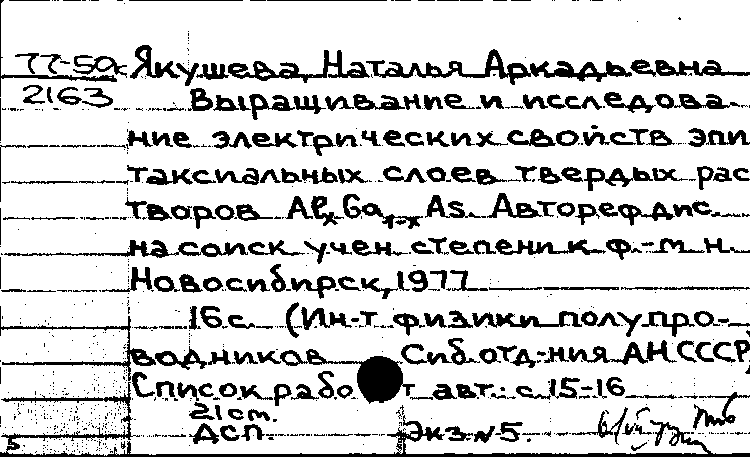 77-50к Якушева, Наталья Аркадьевна
2163 Выращивание и исследова
ние электрических свойств эпи
таксиальных слоев твердых рас
творов AlxGa1-xAs. Автореф дис.
на соиск учен. степени к. ф.-м н.
Новосибирск, 1977
16 с. (Ин-т физики полупро-
водников Сиб. отд-ния АН СССР)
Список рабо т авт.: с. 15-16
21 ст.
ДСП. Экз. № 5.
5